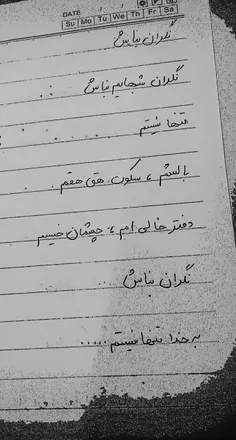 DATE / /
Su Mo Tu We Th Fr Sa
نگران نباش
نگران شبهایم نباش ...
تنها نیستم ......
بالشم ، سکوت، هق هقم ..
دفتر خالی ام ، چشمان خیسم
نگران نباش ...
به خدا تنها نیستم .....